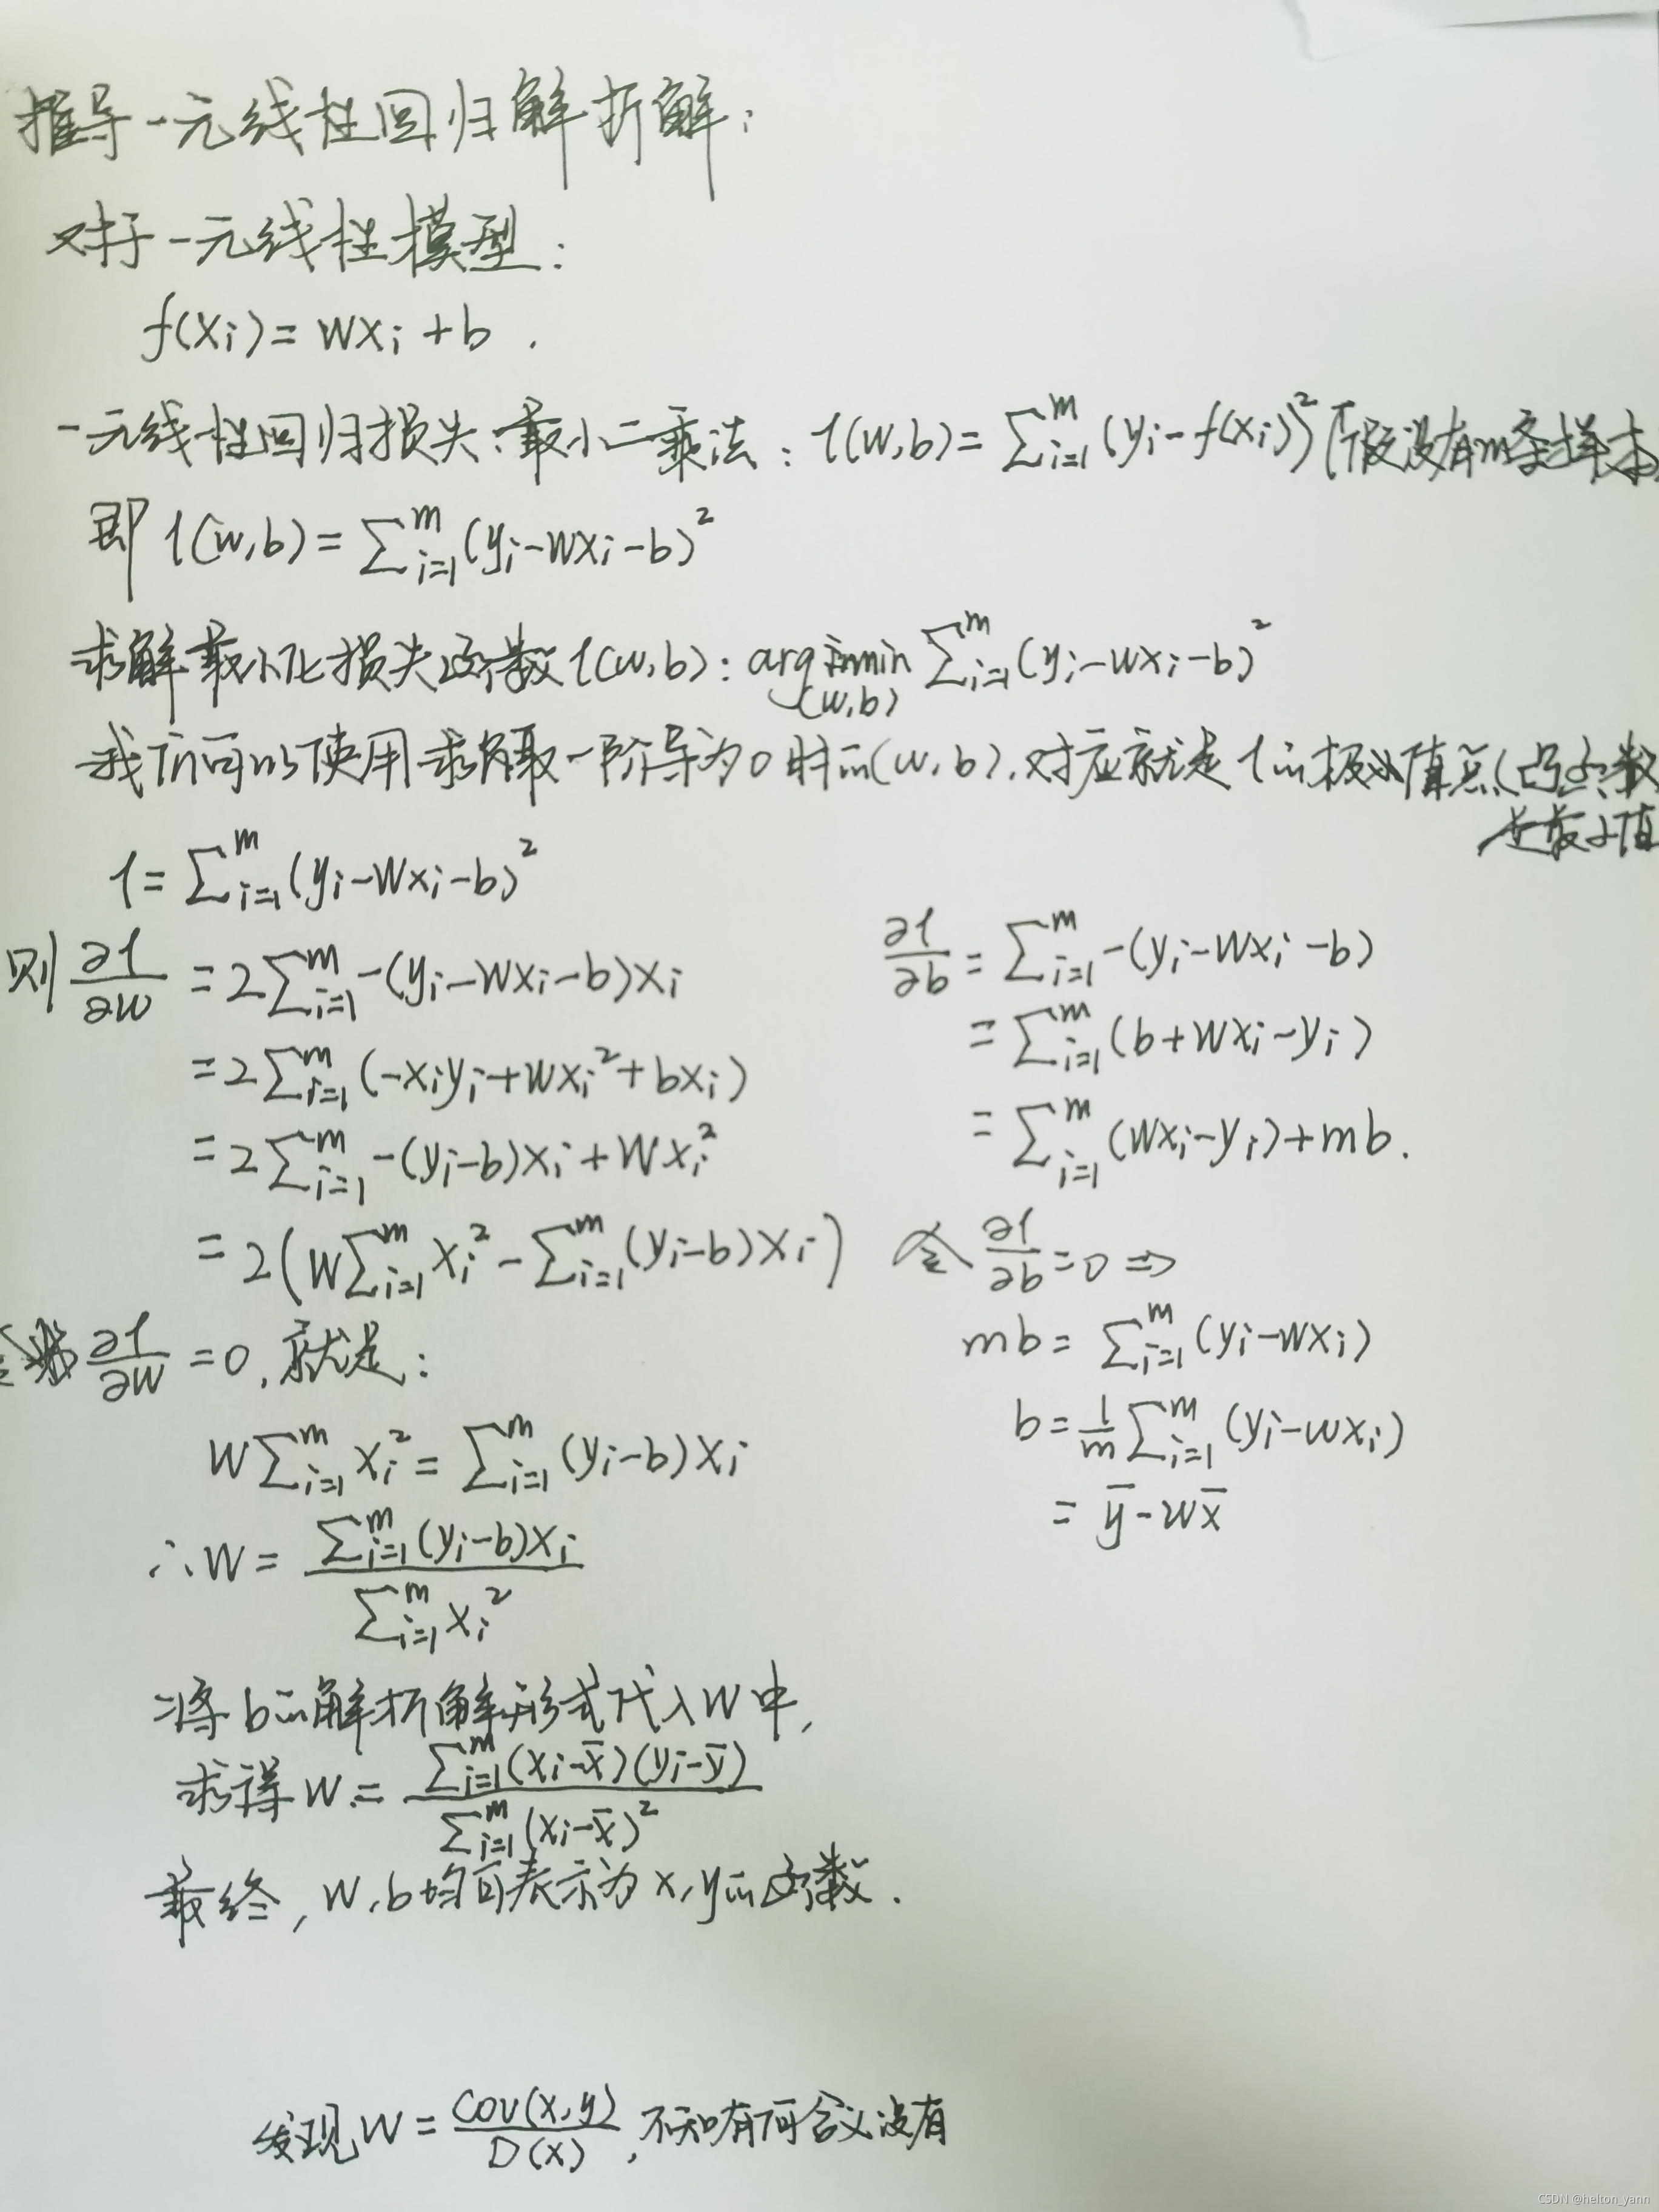 推导一元线性回归解析解：
对于一元线性模型：
f(xᵢ)=wxᵢ+b.
一元线性回归损失:最小二乘法：l(w,b)=∑ᵢ₌₁ᵐ(yᵢ-f(xᵢ))²(假设有m条样本)
即 l(w,b)=∑ᵢ₌₁ᵐ(yᵢ-wxᵢ-b)²
求解最小化损失函数l(w,b)：arg min(w,b) ∑ᵢ₌₁ᵐ(yᵢ-wxᵢ-b)²
我们可以使用求取一阶导为0时的(w,b),对应就是l的极小值点(凸函数
是最小值
l=∑ᵢ₌₁ᵐ(yᵢ-wxᵢ-b)²
则 ∂l/∂w =2∑ᵢ₌₁ᵐ-(yᵢ-wxᵢ-b)xᵢ
=2∑ᵢ₌₁ᵐ(-xᵢyᵢ+wxᵢ²+bxᵢ)
=2∑ᵢ₌₁ᵐ-(yᵢ-b)xᵢ+wxᵢ²
=2(w∑ᵢ₌₁ᵐxᵢ²-∑ᵢ₌₁ᵐ(yᵢ-b)xᵢ)
令 ∂l/∂w =0,就是：
w∑ᵢ₌₁ᵐxᵢ²=∑ᵢ₌₁ᵐ(yᵢ-b)xᵢ
∴w= ∑ᵢ₌₁ᵐ(yᵢ-b)xᵢ / ∑ᵢ₌₁ᵐxᵢ²
∂l/∂b =∑ᵢ₌₁ᵐ-(yᵢ-wxᵢ-b)
=∑ᵢ₌₁ᵐ(b+wxᵢ-yᵢ)
=∑ᵢ₌₁ᵐ(wxᵢ-yᵢ)+mb.
令 ∂l/∂b =0⇒
mb=∑ᵢ₌₁ᵐ(yᵢ-wxᵢ)
b=1/m ∑ᵢ₌₁ᵐ(yᵢ-wxᵢ)
=ȳ-wx̄
将b的解析解形式代入w中,
求得w= ∑ᵢ₌₁ᵐ(xᵢ-x̄)(yᵢ-ȳ) / ∑ᵢ₌₁ᵐ(xᵢ-x̄)²
最终,w,b均可表示为x,y的函数.
发现w= Cov(x,y)/D(x) ,不知有何含义没有
CSDN @helton_yann